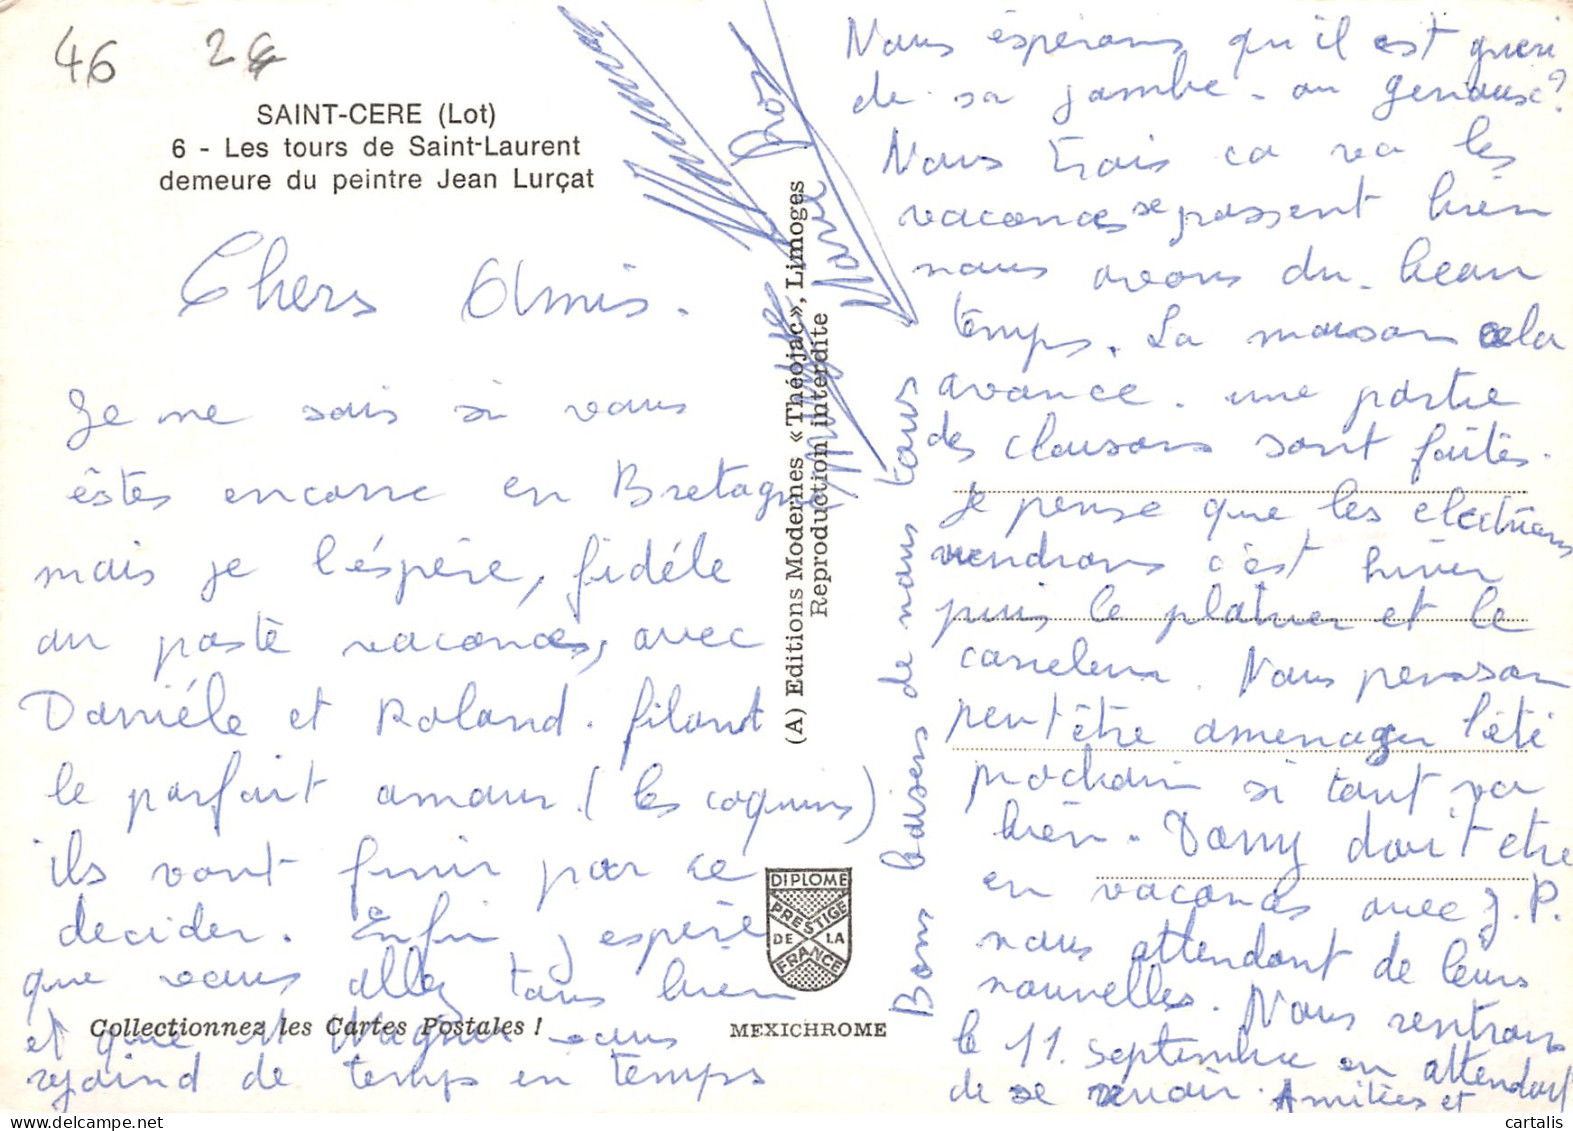 46 26
SAINT-CERE (Lot)
6 - Les tours de Saint-Laurent
demeure du peintre Jean Lurçat
Chers Amis.
Je ne sais si vous
êtes encore en Bretagne
mais je l'éspère, fidéle
au poste vacances, avec
Daniéle et Roland. filant
le parfait amour. (les coquins)
ils vont finir par se
decider. Enfin j espère
que vous allez tous bien
et que M Wagner vous
rejoind de temps en temps
Collectionnez les Cartes Postales !
(A) Editions Modernes «Théojac», Limoges
Reproduction interdite
DIPLOME
PRESTIGE
DE LA
FRANCE
MEXICHROME
Nous éspérons qu'il est gueri
de sa jambe - ou genoux?
Nous trois ca va les
vacances se passent bien
nous avons du beau
temps. La maison cela
avance. une partie
des cloisons sont faites.
Je pense que les electriciens
viendrons c'est hiver
puis le platrier et le
careleur. Nous pensson
peut être amenager l'été
prochain si tout va
bien. Dany doit etre
en vacances avec J.P.
nous attendont de leurs
nouvelles. Nous rentrons
le 11. septembre en attendant
de se revoir. Amitiés et
Bons baisers de nous tous
Maurice
Marie Rose